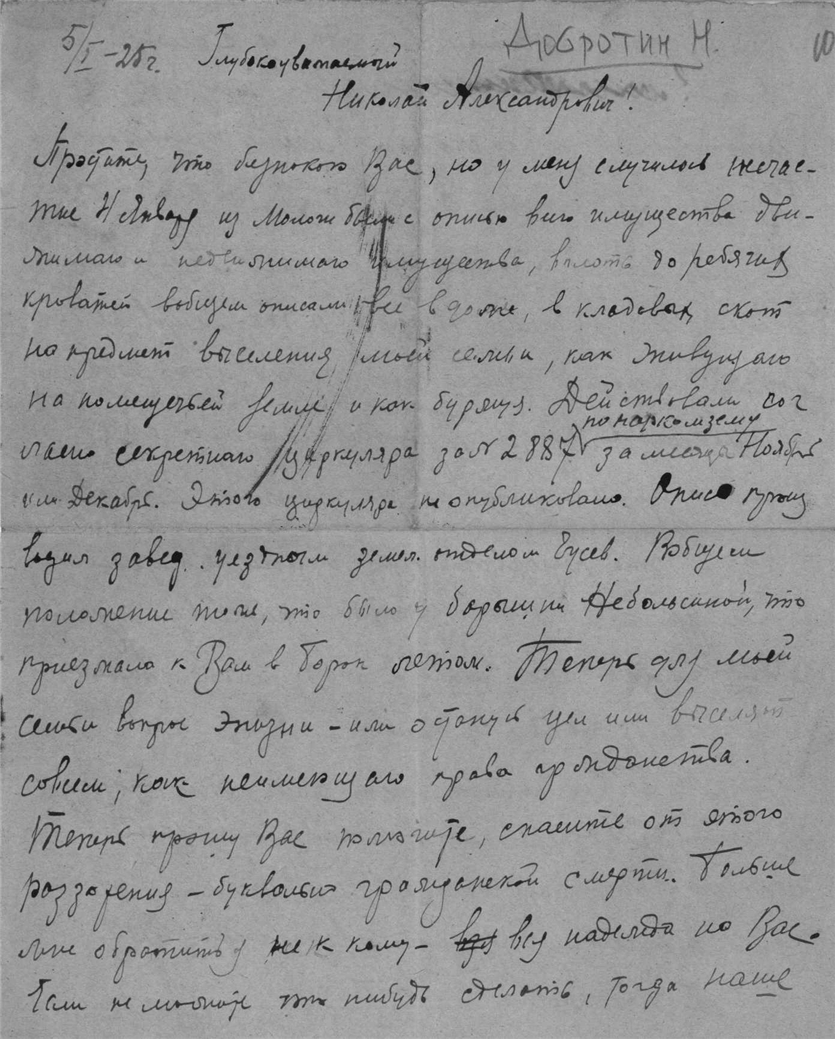 5/I –25 г. Глубокоуважаемый
Добротин Н.
10
Николай Александрович!
Простите, что безпокою Вас, но у меня случилось несчас-
тие 4 Января из Мологи были с описью всего имущества дви-
жимаго и недвижимаго имущества, вплоть до ребячих
кроватей вобщем описали все в доме, в кладовых, скот
на предмет выселения моей семьи, как живущаго
на помещечьей земле и как буржуя. Действовали сог
ласно секретнаго циркуляра за № 2887 за месяца Ноябрь
по наркомзему
или Декабрь. Этого циркуляра не опубликовано. Опись произ
водил завед. уездным земел. отделом Гусев. Вобщем
положение тоже, что было у барышни Небольсиной, что
приезжала к Вам в Борок летом. Теперь для моей
семьи вопрос жизни – или останусь цел или выселят
совсем, как неимеющаго права гражданства.
Теперь прошу Вас помогите, спасите от этого
раззорения – буквально гражданской смерти. Больше
мне обратиться не к кому – вся надежда на Вас.
Если не можете что нибудь сделать, тогда наше